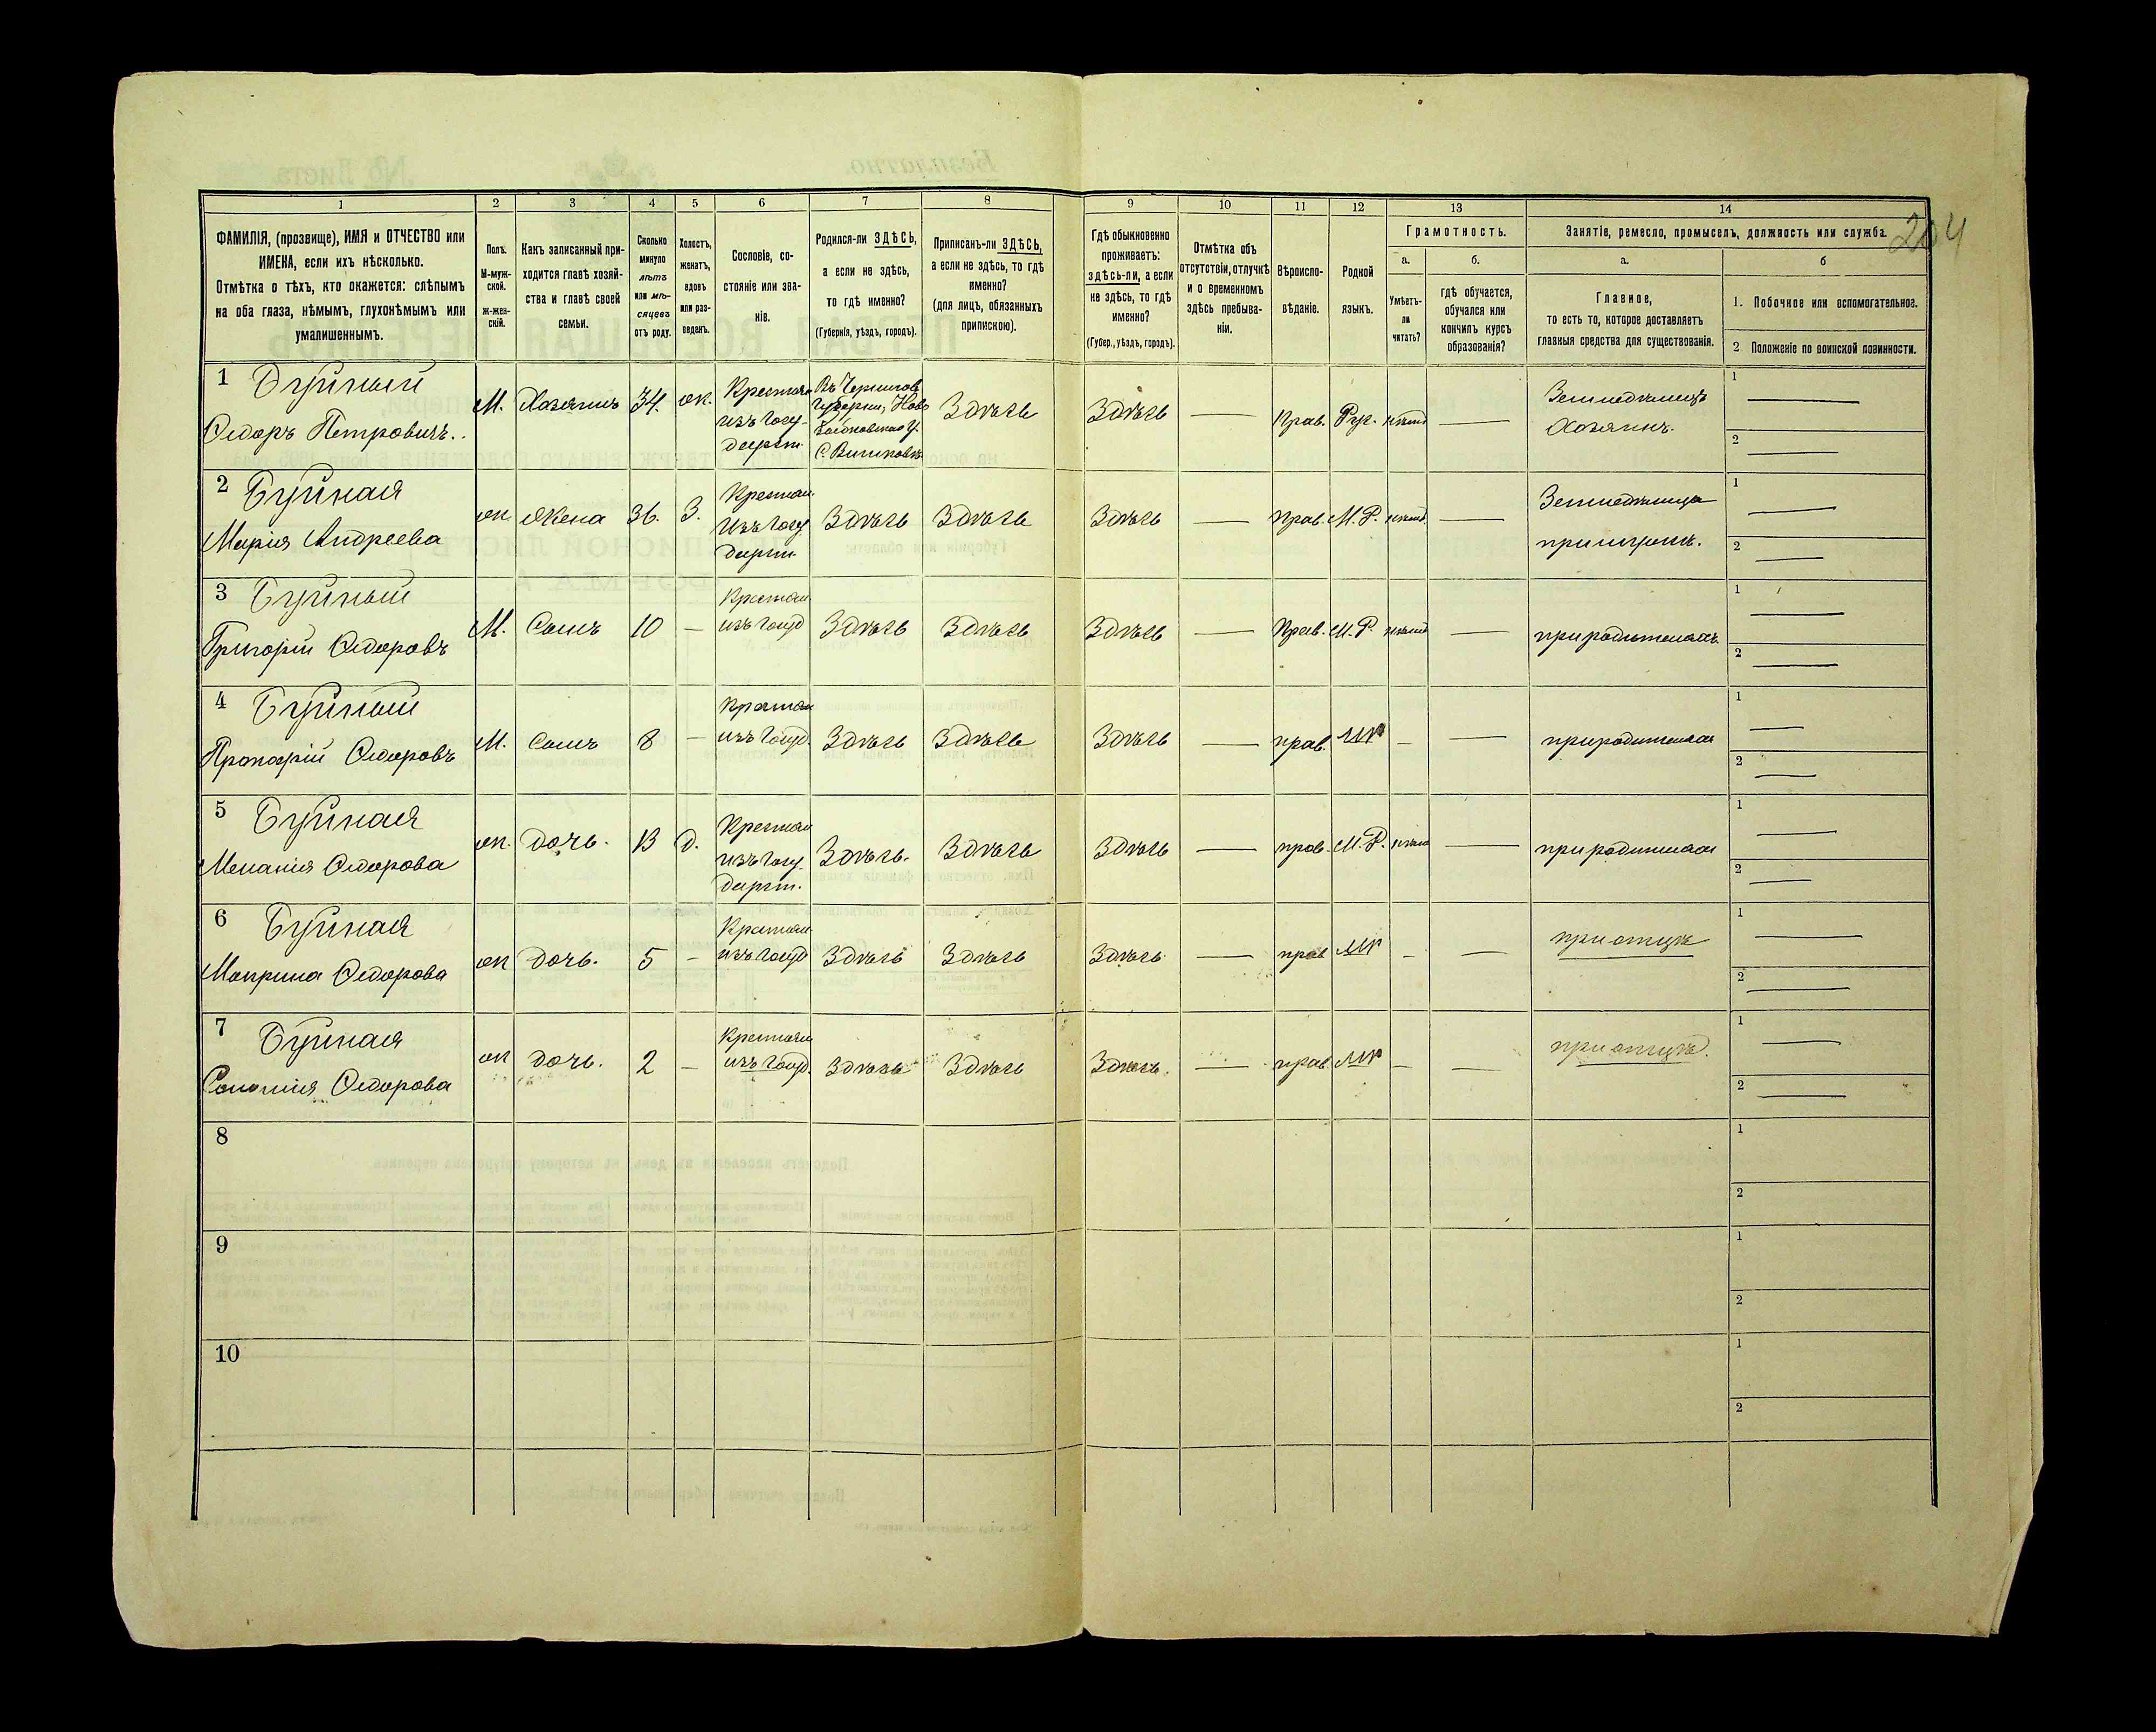 204
1 2 3 4 5 6 7 8 9 10 11 12 13 14
ФАМИЛІЯ, (прозвище), ИМЯ и ОТЧЕСТВО или
ИМЕНА, если ихъ нѣсколько.
Отмѣтка о тѣхъ, кто окажется: слѣпымъ
на оба глаза, нѣмымъ, глухонѣмымъ или
умалишеннымъ.
Полъ.
М-муж-
ской.
Ж-жен-
скій.
Какъ записанный при-
ходится главѣ хозяй-
ства и главѣ своей
семьи.
Сколько
минуло
лѣтъ
или мѣ-
сяцевъ
отъ роду.
Холостъ,
женатъ,
вдовъ
или раз-
веденъ.
Сословіе, со-
стояніе или зва-
ніе.
Родился-ли ЗДѢСЬ,
а если не здѣсь,
то гдѣ именно?
(Губернія, уѣздъ, городъ).
Приписанъ-ли ЗДѢСЬ,
а если не здѣсь, то гдѣ
именно?
(для лицъ, обязанныхъ
припискою).
Гдѣ обыкновенно
проживаетъ:
здѣсь-ли, а если
не здѣсь, то гдѣ
именно?
(Губер., уѣздъ, городъ).
Отмѣтка объ
отсутствіи, отлучкѣ
и о временномъ
здѣсь пребыва-
ніи.
Вѣроиспо-
вѣданіе.
Родной
языкъ.
Грамотность.
а.
Умѣетъ-
ли
читать?
б.
гдѣ обучается,
обучался или
кончилъ курсъ
образованія?
Занятіе, ремесло, промыселъ, должность или служба.
а.
Главное,
то есть то, которое доставляетъ
главныя средства для существованія.
б
1. Побочное или вспомогательное.
2 Положеніе по воинской повинности.
1 Буйный
Ѳедоръ Петровичъ..
М. Хозяинъ 34. ж.
Крестья
изъ Госу-
дарст.
Въ Чернигов
Губерніи, Ново
С. Вишновкѣ
Здѣсь Здѣсь — Прав. Рус. —
Земледѣлецъ
Хозяинъ.
1 —
2 —
2 Буйная
Марія Андреева
ж Жена 36. З.
Крестьян.
Изъ Госу
дарст.
Здѣсь Здѣсь Здѣсь — Прав. М.Р. —
Земледѣлица
1 —
2 —
3 Буйный
Григорій Ѳедоровъ
М. Сынъ 10 —
Крестьян.
изъ Госуд
Здѣсь Здѣсь Здѣсь — Прав. М.Р. —
при родителяхъ
1 —
2 —
4 Буйный
Прокофій Ѳедоровъ
М. Сынъ 8 —
Крестьян
изъ Госуд.
Здѣсь Здѣсь Здѣсь — прав. МР — —
при родителях
1 —
2 —
5 Буйная
Меланія Ѳедорова
ж. дочь. 13 д.
Крестьян
Изъ Госу.
дарст.
Здѣсь. Здѣсь Здѣсь — прав. М.Р. —
при родителях
1 —
2 —
6 Буйная
Макрина Ѳедорова
ж дочь. 5 —
Крестьян
изъ Госуд
Здѣсь Здѣсь Здѣсь — прав МР — —
при отцѣ
1 —
2 —
7 Буйная
Соломія Ѳедорова
ж дочь. 2 —
Крестьян
изъ Госуд.
Здѣсь Здѣсь Здѣсь. — прав. МР — —
при отцѣ.
1 —
2 —
8
1
2
9
1
2
10
1
2